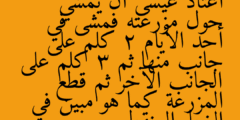 اعتاد عيسى أن يمشي
حول مزرعته فمشى في
أحد الأيام ٢ كلم على
جانب منها ثم ٣ كلم على
الجانب الآخر ثم قطع
المزرعة كما هو مبين في